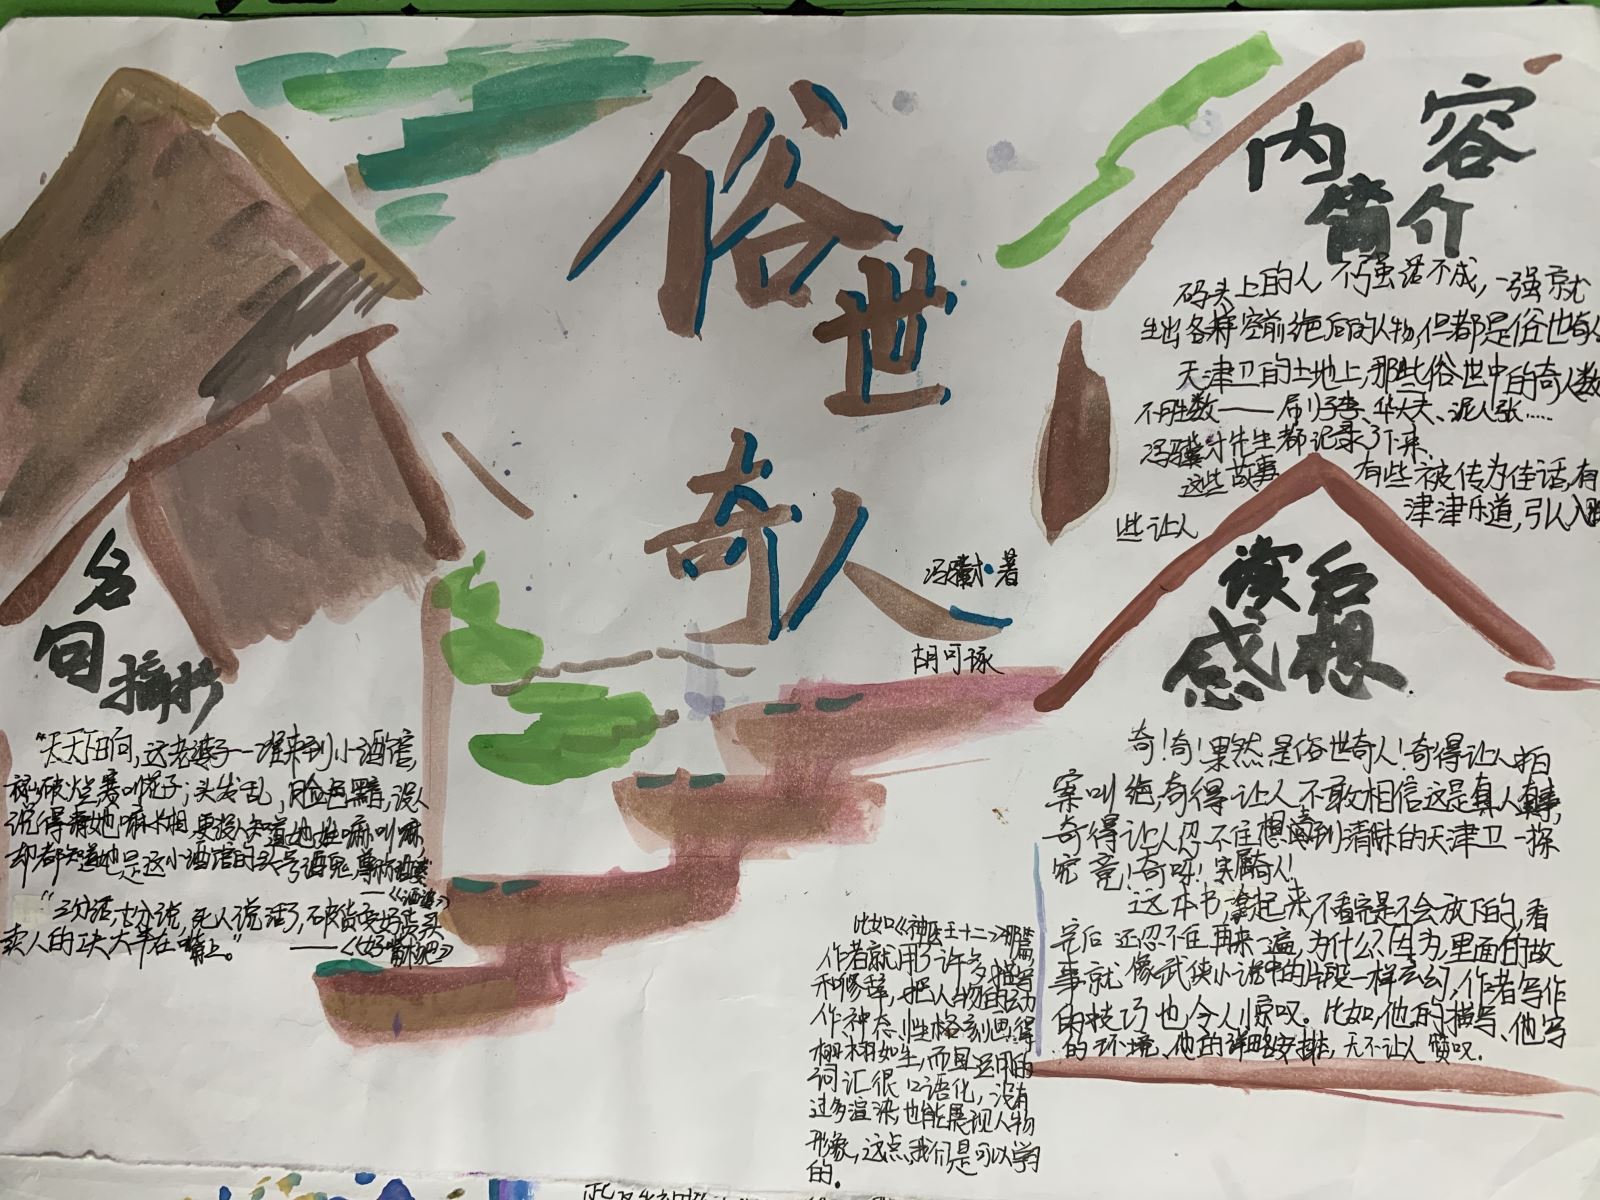 俗世
奇人
冯骥才·著
胡可琢
内容
简介
码头上的人,不强活不成,一强就
生出各样空前绝后的人物,但都是俗世奇人
天津卫的土地上,那些俗世中的奇人数
不胜数——刷子李、华大夫、泥人张……
冯骥才先生都记录了下来。
这些故事 有些被传为佳话,有
些让人 津津乐道,引人入胜
读后
感想
奇!奇!果然是俗世奇人!奇得让人拍
案叫绝,奇得让人不敢相信这是真人真事,
奇得让人忍不住想 到清 的天津卫一探
究竟!奇呀!实属奇人!
这本书,拿起来,不看完是不会放下的,看
完后还忍不住再来一遍,为什么?因为,里面的故
事就像武侠小说中的片段一样玄幻,作者写作
的技巧也令人惊叹。比如,他的描写、他写
的环境、他的详略安排,无不让人赞叹。
比如《神医王十二》那篇,
作者就用了许多描写
和修辞,把人物的动
作、神态、性格刻画得
栩栩如生,而且运用的
词汇很口语化,没有
过多渲染,也能展现人物
形象,这点,我们是可以学习
的。
名
句摘抄
“天天下晌,这老婆子一准来到小酒馆,
衣衫破烂,赛叫花子;头发乱,脸色黯,没人
说得清她嘛长相,更没人知道她姓嘛叫嘛,
却都知道她是这小酒馆的头号酒鬼,尊称酒婆
——《酒婆》
“三分活,七分说,死人说活了,破货变好货,买
卖人的功夫大半在嘴上。” ——《好嘴杨巴》